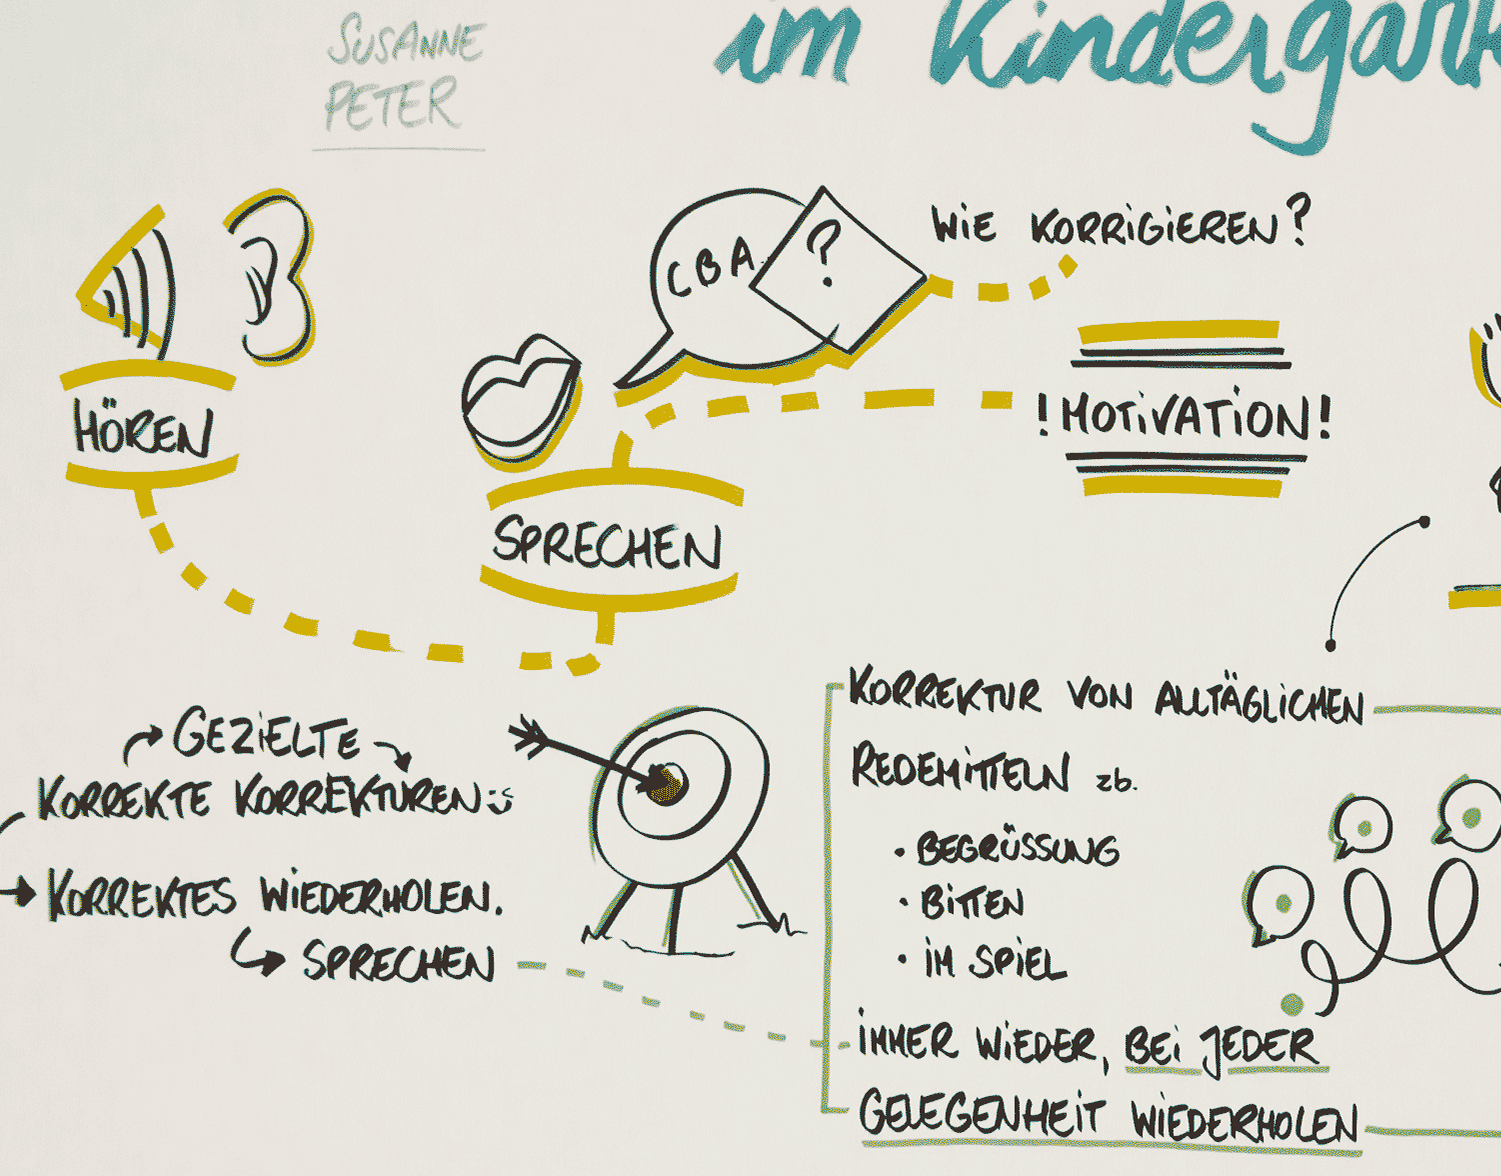 SUSANNE
PETER
im Kindergart
CBA
?
WIE KORRIGIEREN?
HÖREN
! MOTIVATION!
SPRECHEN
GEZIELTE
KORREKTE KORREKTUREN
KORREKTES WIEDERHOLEN.
SPRECHEN
KORREKTUR VON ALLTÄGLICHEN
REDEMITTELN zb.
• BEGRÜSSUNG
• BITTEN
• IM SPIEL
IMMER WIEDER, BEI JEDER
GELEGENHEIT WIEDERHOLEN